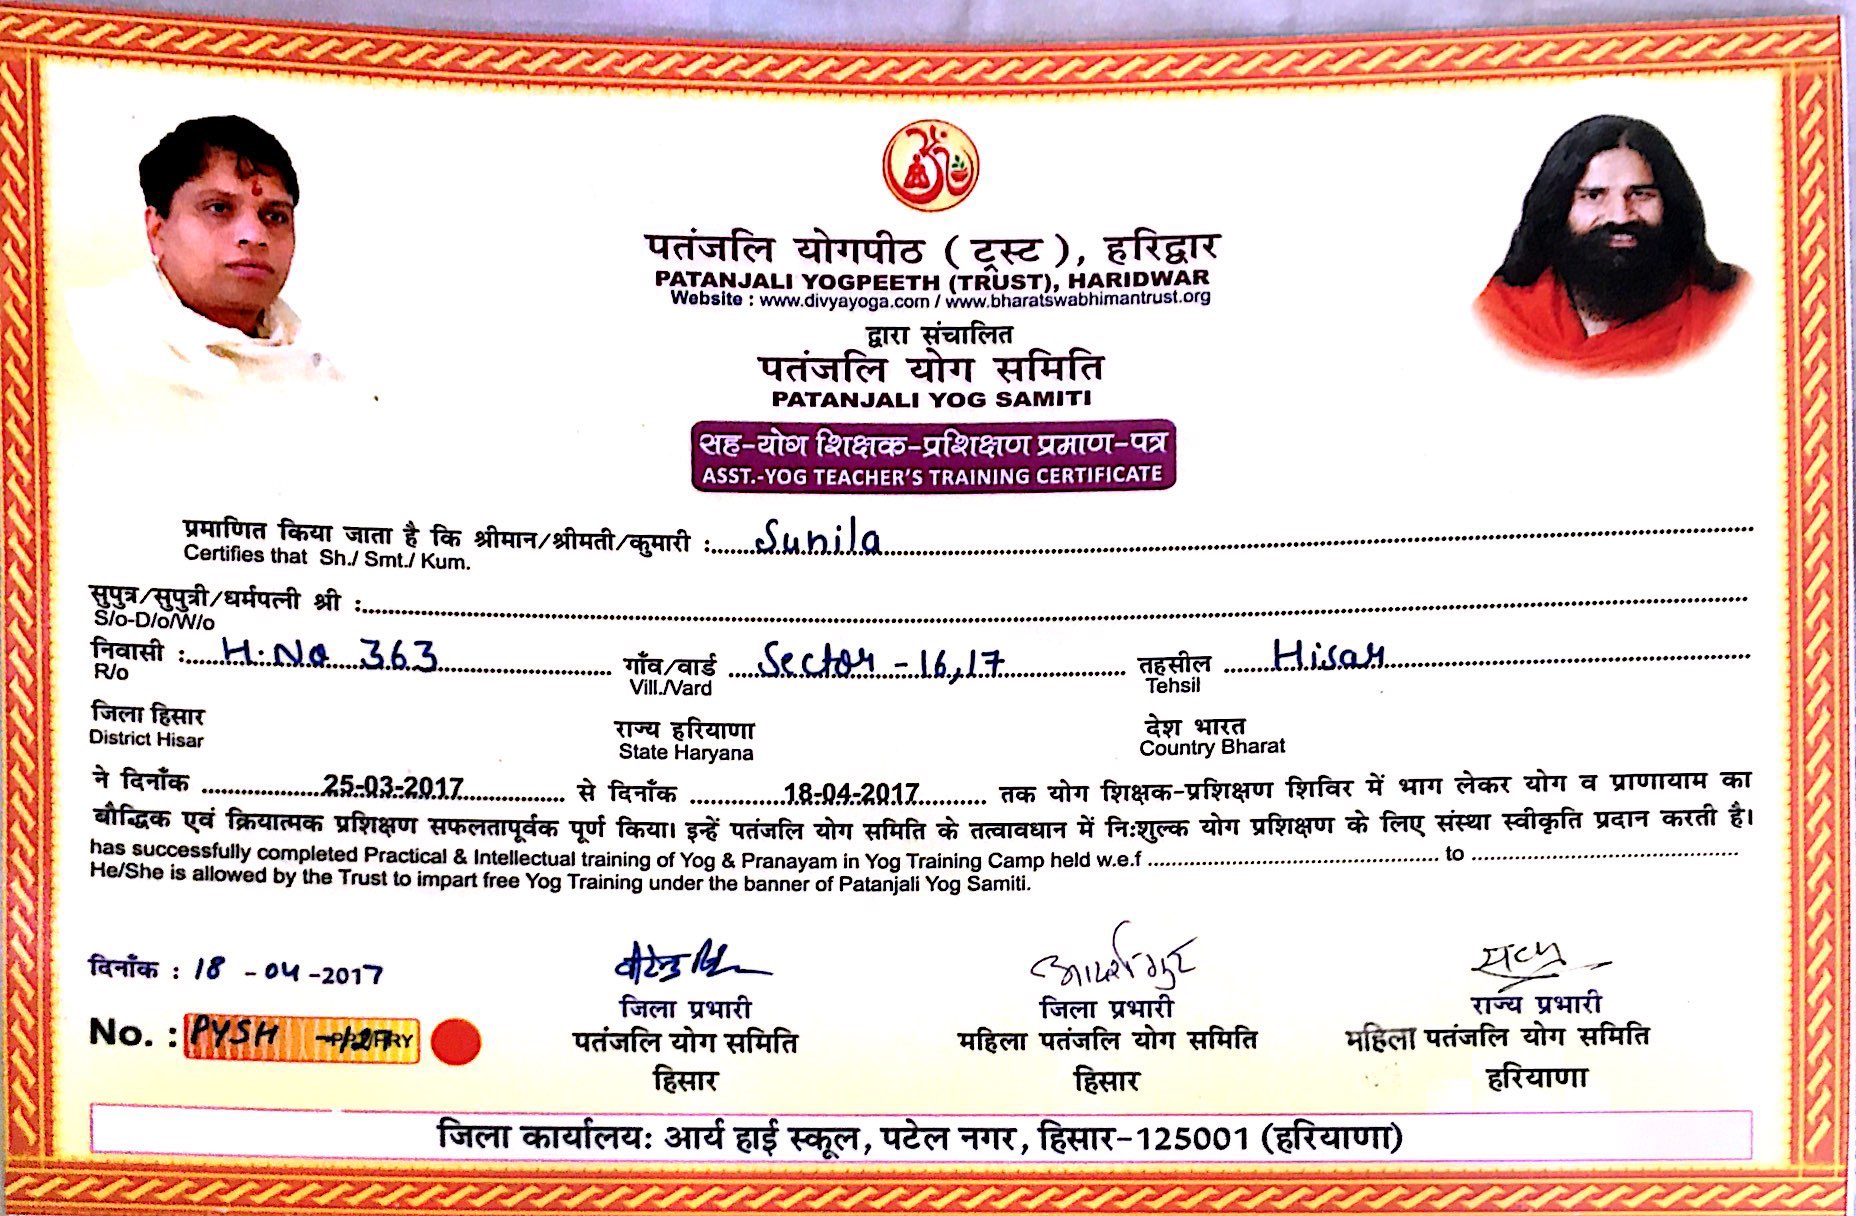 पतंजलि योगपीठ ( ट्रस्ट ), हरिद्वार
PATANJALI YOGPEETH (TRUST), HARIDWAR
Website : www.divyayoga.com / www.bharatswabhimantrust.org
द्वारा संचालित
पतंजलि योग समिति
PATANJALI YOG SAMITI
सह-योग शिक्षक-प्रशिक्षण प्रमाण-पत्र
ASST.-YOG TEACHER'S TRAINING CERTIFICATE
प्रमाणित किया जाता है कि श्रीमान/श्रीमती/कुमारी : Sunila
Certifies that Sh./ Smt./ Kum.
सुपुत्र/सुपुत्री/धर्मपत्नी श्री :
S/o-D/o/W/o
निवासी : H.No 363 गाँव/वार्ड Sector - 16,17 तहसील Hisar
R/o Vill./Vard Tehsil
जिला हिसार राज्य हरियाणा देश भारत
District Hisar State Haryana Country Bharat
ने दिनाँक 25-03-2017 से दिनाँक 18-04-2017 तक योग शिक्षक-प्रशिक्षण शिविर में भाग लेकर योग व प्राणायाम का
बौद्धिक एवं क्रियात्मक प्रशिक्षण सफलतापूर्वक पूर्ण किया। इन्हें पतंजलि योग समिति के तत्वावधान में निःशुल्क योग प्रशिक्षण के लिए संस्था स्वीकृति प्रदान करती है।
has successfully completed Practical & Intellectual training of Yog & Pranayam in Yog Training Camp held w.e.f to
He/She is allowed by the Trust to impart free Yog Training under the banner of Patanjali Yog Samiti.
दिनाँक : 18 - 04 - 2017
जिला प्रभारी जिला प्रभारी राज्य प्रभारी
No. : PYSH
पतंजलि योग समिति महिला पतंजलि योग समिति महिला पतंजलि योग समिति
हिसार हिसार हरियाणा
जिला कार्यालय: आर्य हाई स्कूल, पटेल नगर, हिसार-125001 (हरियाणा)